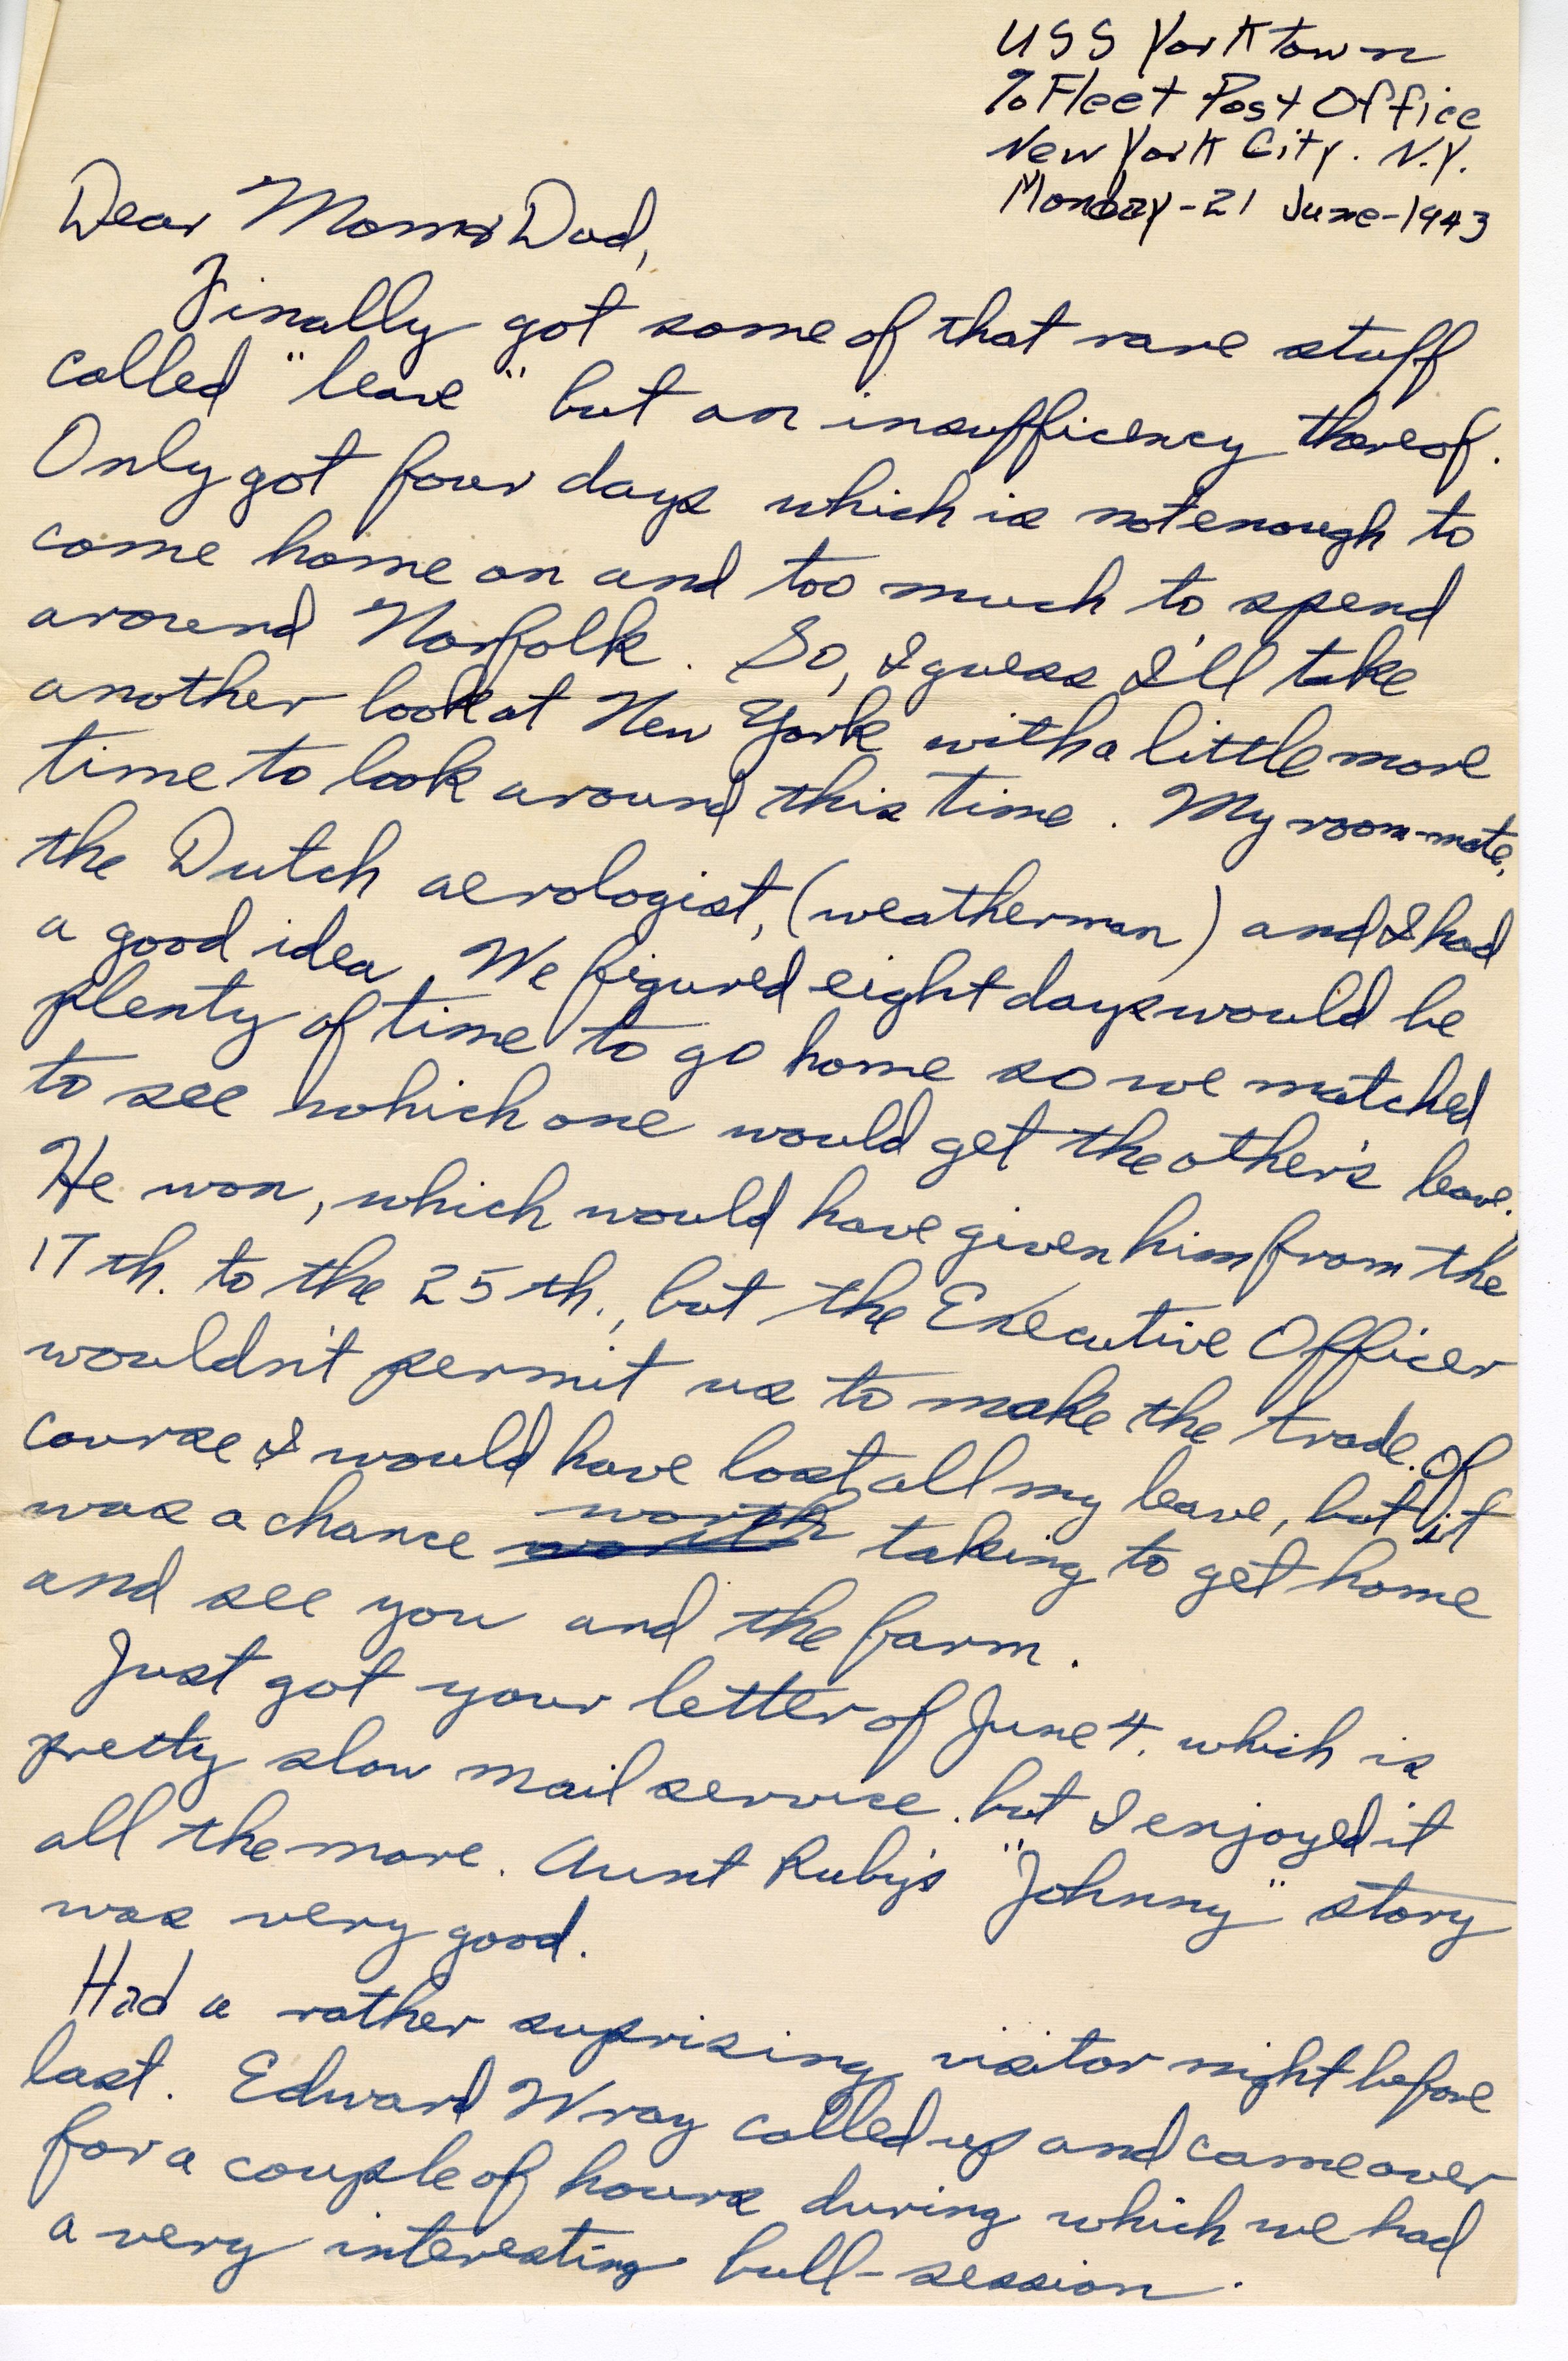 USS Yorktown
% Fleet Post Office
New York City. N.Y.
Monday-21 June-1943
Dear Mom & Dad,
Finally got some of that rare stuff
called "leave" but an insufficency thereof.
Only got four days which is not enough to
come home on and too much to spend
around Norfolk. So, I guess I'll take
another look at New York with a little more
time to look around this time. My room-mate,
the Dutch aerologist, (weatherman) and I had
a good idea. We figured eight days would be
plenty of time to go home so we matched
to see which one would get the other's leave.
He won, which would have given him from the
17th. to the 25th., but the Executive Officer
wouldn't permit us to make the trade. Of
course I would have lost all my leave, but it
was a chance worth taking to get home
and see you and the farm.
Just got your letter of June 4. which is
pretty slow mail service. but I enjoyed it
all the more. Aunt Ruby's "Johnny" story
was very good.
Had a rather suprising visitor night before
last. Edward Wray called up and came over
for a couple of hours during which we had
a very interesting bull-session.